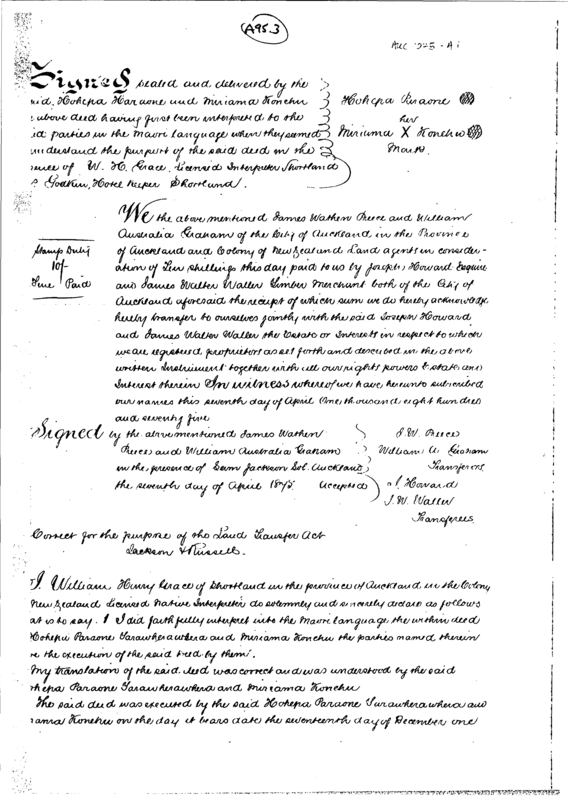 A95.3
Signed sealed and delivered by the
Hohepa Paraone and Miriama Konehu
above deed having first been interpreted to the
parties in the Maori language when they seemed
understand the purport of the said deed in the
of W. H. Grace, Licensed Interpreter Shortland
Godkin, Hotel Keeper Shortland.
Hohepa Paraone
her
Miriama X Konehu
Mark
We the above mentioned James Wathen Preece and William
Australia Graham of the City of Auckland in the Province
of Auckland and Colony of New Zealand Land agents in consider-
ation of Ten shillings this day paid to us by Joseph Howard Esquire
and James Walter Waller Timber Merchant both of the City of
Auckland aforesaid the receipt of which sum we do hereby acknowledge
hereby transfer to ourselves jointly with the said Joseph Howard
and James Walter Waller the Estate or Interests in respect to which
we are registered proprietors as set forth and described in the above
written Instrument together with all our rights powers Estate and
Interest therein In witness whereof we have hereunto subscribed
our names this seventh day of April One thousand eight hundred
and seventy five
Stamp Duty
10/-
Fine Paid
Signed by the above mentioned James Wathen
Preece and William Australia Graham
in the presence of Jackson Sol. Auckland
the seventh day of April 1875. Accepted
J. W. Preece
William A. Graham
Transferors
J. Howard
J. W. Waller
Transferees
Correct for the purpose of the Land Transfer Act
Jackson & Russell.
I. William Henry Grace of Shortland in the province of Auckland in the Colony
New Zealand Licensed Native Interpreter do solemnly and sincerely declare as follows
at is to say. 1 I did faithfully interpret into the Maori language the within deed
Hohepa Paraone Tarawherawhera and Miriama Konehu the parties named therein
re the execution of the said deed by them.
My translation of the said deed was correct and was understood by the said
Paraone Tarawherawhera and Miriama Konehu
The said deed was executed by the said Hohepa Paraone Tarawherawhera and
Konehu on the day it bears date the seventeenth day of December one